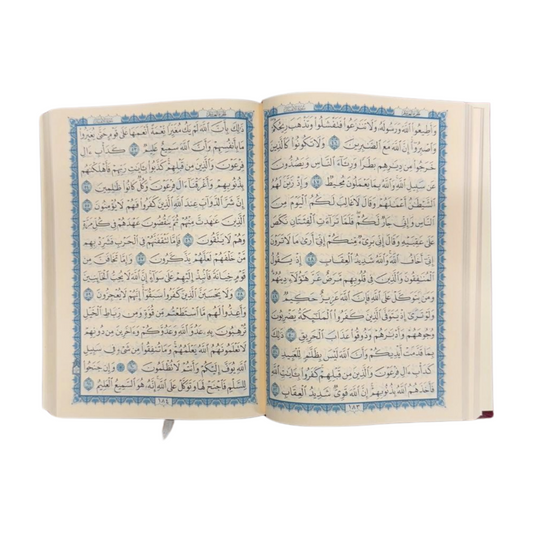 وَأَطِيعُوا۟ ٱللَّهَ وَرَسُولَهُۥ وَلَا تَنَٰزَعُوا۟ فَتَفْشَلُوا۟ وَتَذْهَبَ رِيحُكُمْ
وَٱصْبِرُوٓا۟ إِنَّ ٱللَّهَ مَعَ ٱلصَّٰبِرِينَ ٤٦ وَلَا تَكُونُوا۟ كَٱلَّذِينَ
خَرَجُوا۟ مِن دِيَٰرِهِم بَطَرًا وَرِئَآءَ ٱلنَّاسِ وَيَصُدُّونَ
عَن سَبِيلِ ٱللَّهِ وَٱللَّهُ بِمَا يَعْمَلُونَ مُحِيطٌ ٤٧ وَإِذْ زَيَّنَ لَهُمُ
ٱلشَّيْطَٰنُ أَعْمَٰلَهُمْ وَقَالَ لَا غَالِبَ لَكُمُ ٱلْيَوْمَ مِنَ
ٱلنَّاسِ وَإِنِّى جَارٌ لَّكُمْ فَلَمَّا تَرَآءَتِ ٱلْفِئَتَانِ نَكَصَ
عَلَىٰ عَقِبَيْهِ وَقَالَ إِنِّى بَرِىٓءٌ مِّنكُمْ إِنِّىٓ أَرَىٰ مَا لَا تَرَوْنَ
إِنِّىٓ أَخَافُ ٱللَّهَ وَٱللَّهُ شَدِيدُ ٱلْعِقَابِ ٤٨ إِذْ يَقُولُ
ٱلْمُنَٰفِقُونَ وَٱلَّذِينَ فِى قُلُوبِهِم مَّرَضٌ غَرَّ هَٰٓؤُلَآءِ دِينُهُمْ
وَمَن يَتَوَكَّلْ عَلَى ٱللَّهِ فَإِنَّ ٱللَّهَ عَزِيزٌ حَكِيمٌ ٤٩
وَلَوْ تَرَىٰٓ إِذْ يَتَوَفَّى ٱلَّذِينَ كَفَرُوا۟ ٱلْمَلَٰٓئِكَةُ يَضْرِبُونَ
وُجُوهَهُمْ وَأَدْبَٰرَهُمْ وَذُوقُوا۟ عَذَابَ ٱلْحَرِيقِ ٥٠ ذَٰلِكَ
بِمَا قَدَّمَتْ أَيْدِيكُمْ وَأَنَّ ٱللَّهَ لَيْسَ بِظَلَّٰمٍ لِّلْعَبِيدِ ٥١
كَدَأْبِ ءَالِ فِرْعَوْنَ وَٱلَّذِينَ مِن قَبْلِهِمْ كَفَرُوا۟ بِـَٔايَٰتِ ٱللَّهِ
فَأَخَذَهُمُ ٱللَّهُ بِذُنُوبِهِمْ إِنَّ ٱللَّهَ قَوِىٌّ شَدِيدُ ٱلْعِقَابِ ٥٢
١٨٣
ذَٰلِكَ بِأَنَّ ٱللَّهَ لَمْ يَكُ مُغَيِّرًا نِّعْمَةً أَنْعَمَهَا عَلَىٰ قَوْمٍ حَتَّىٰ يُغَيِّرُوا۟
مَا بِأَنفُسِهِمْ وَأَنَّ ٱللَّهَ سَمِيعٌ عَلِيمٌ ٥٣ كَدَأْبِ ءَالِ
فِرْعَوْنَ وَٱلَّذِينَ مِن قَبْلِهِمْ كَذَّبُوا۟ بِـَٔايَٰتِ رَبِّهِمْ فَأَهْلَكْنَٰهُم
بِذُنُوبِهِمْ وَأَغْرَقْنَآ ءَالَ فِرْعَوْنَ وَكُلٌّ كَانُوا۟ ظَٰلِمِينَ ٥٤
إِنَّ شَرَّ ٱلدَّوَآبِّ عِندَ ٱللَّهِ ٱلَّذِينَ كَفَرُوا۟ فَهُمْ لَا يُؤْمِنُونَ ٥٥
ٱلَّذِينَ عَٰهَدتَّ مِنْهُمْ ثُمَّ يَنقُضُونَ عَهْدَهُمْ فِى كُلِّ مَرَّةٍ
وَهُمْ لَا يَتَّقُونَ ٥٦ فَإِمَّا تَثْقَفَنَّهُمْ فِى ٱلْحَرْبِ فَشَرِّدْ بِهِم
مَّنْ خَلْفَهُمْ لَعَلَّهُمْ يَذَّكَّرُونَ ٥٧ وَإِمَّا تَخَافَنَّ مِن
قَوْمٍ خِيَانَةً فَٱنۢبِذْ إِلَيْهِمْ عَلَىٰ سَوَآءٍ إِنَّ ٱللَّهَ لَا يُحِبُّ ٱلْخَآئِنِينَ
٥٨ وَلَا يَحْسَبَنَّ ٱلَّذِينَ كَفَرُوا۟ سَبَقُوٓا۟ إِنَّهُمْ لَا يُعْجِزُونَ ٥٩
وَأَعِدُّوا۟ لَهُم مَّا ٱسْتَطَعْتُم مِّن قُوَّةٍ وَمِن رِّبَاطِ ٱلْخَيْلِ
تُرْهِبُونَ بِهِۦ عَدُوَّ ٱللَّهِ وَعَدُوَّكُمْ وَءَاخَرِينَ مِن دُونِهِمْ
لَا تَعْلَمُونَهُمُ ٱللَّهُ يَعْلَمُهُمْ وَمَا تُنفِقُوا۟ مِن شَىْءٍ فِى سَبِيلِ
ٱللَّهِ يُوَفَّ إِلَيْكُمْ وَأَنتُمْ لَا تُظْلَمُونَ ٦٠ ۞ وَإِن جَنَحُوا۟
لِلسَّلْمِ فَٱجْنَحْ لَهَا وَتَوَكَّلْ عَلَى ٱللَّهِ إِنَّهُۥ هُوَ ٱلسَّمِيعُ ٱلْعَلِيمُ ٦١
١٨٤